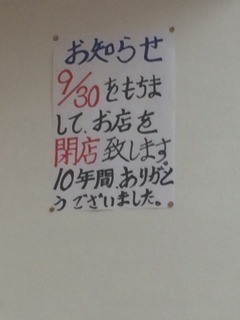 お知らせ
9/30をもちま
して、お店を
閉店致します。
10年間、ありがと
うございました。